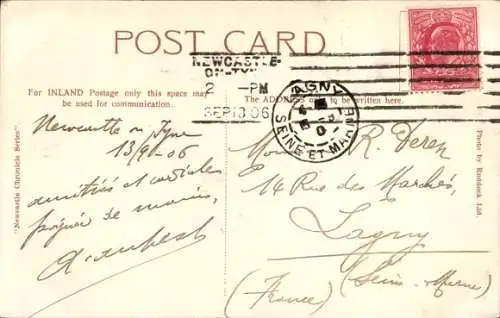 POST CARD
NEWCASTLE-
ON-TYNE
2 - PM
SEP 13 06
LAGNY
SEINE-ET-MARNE
For INLAND Postage only this space may
be used for communication.
The ADDRESS only to be written here.
"Newcastle Chronicle Series"
Photo by Ruddock Ltd.
Newcastle on Tyne
13/9-06
amitiés et cordiales
poignée de mains,
R. Deren
14 Rue des Marchés,
Lagny
(Seine-Marne)
(France)